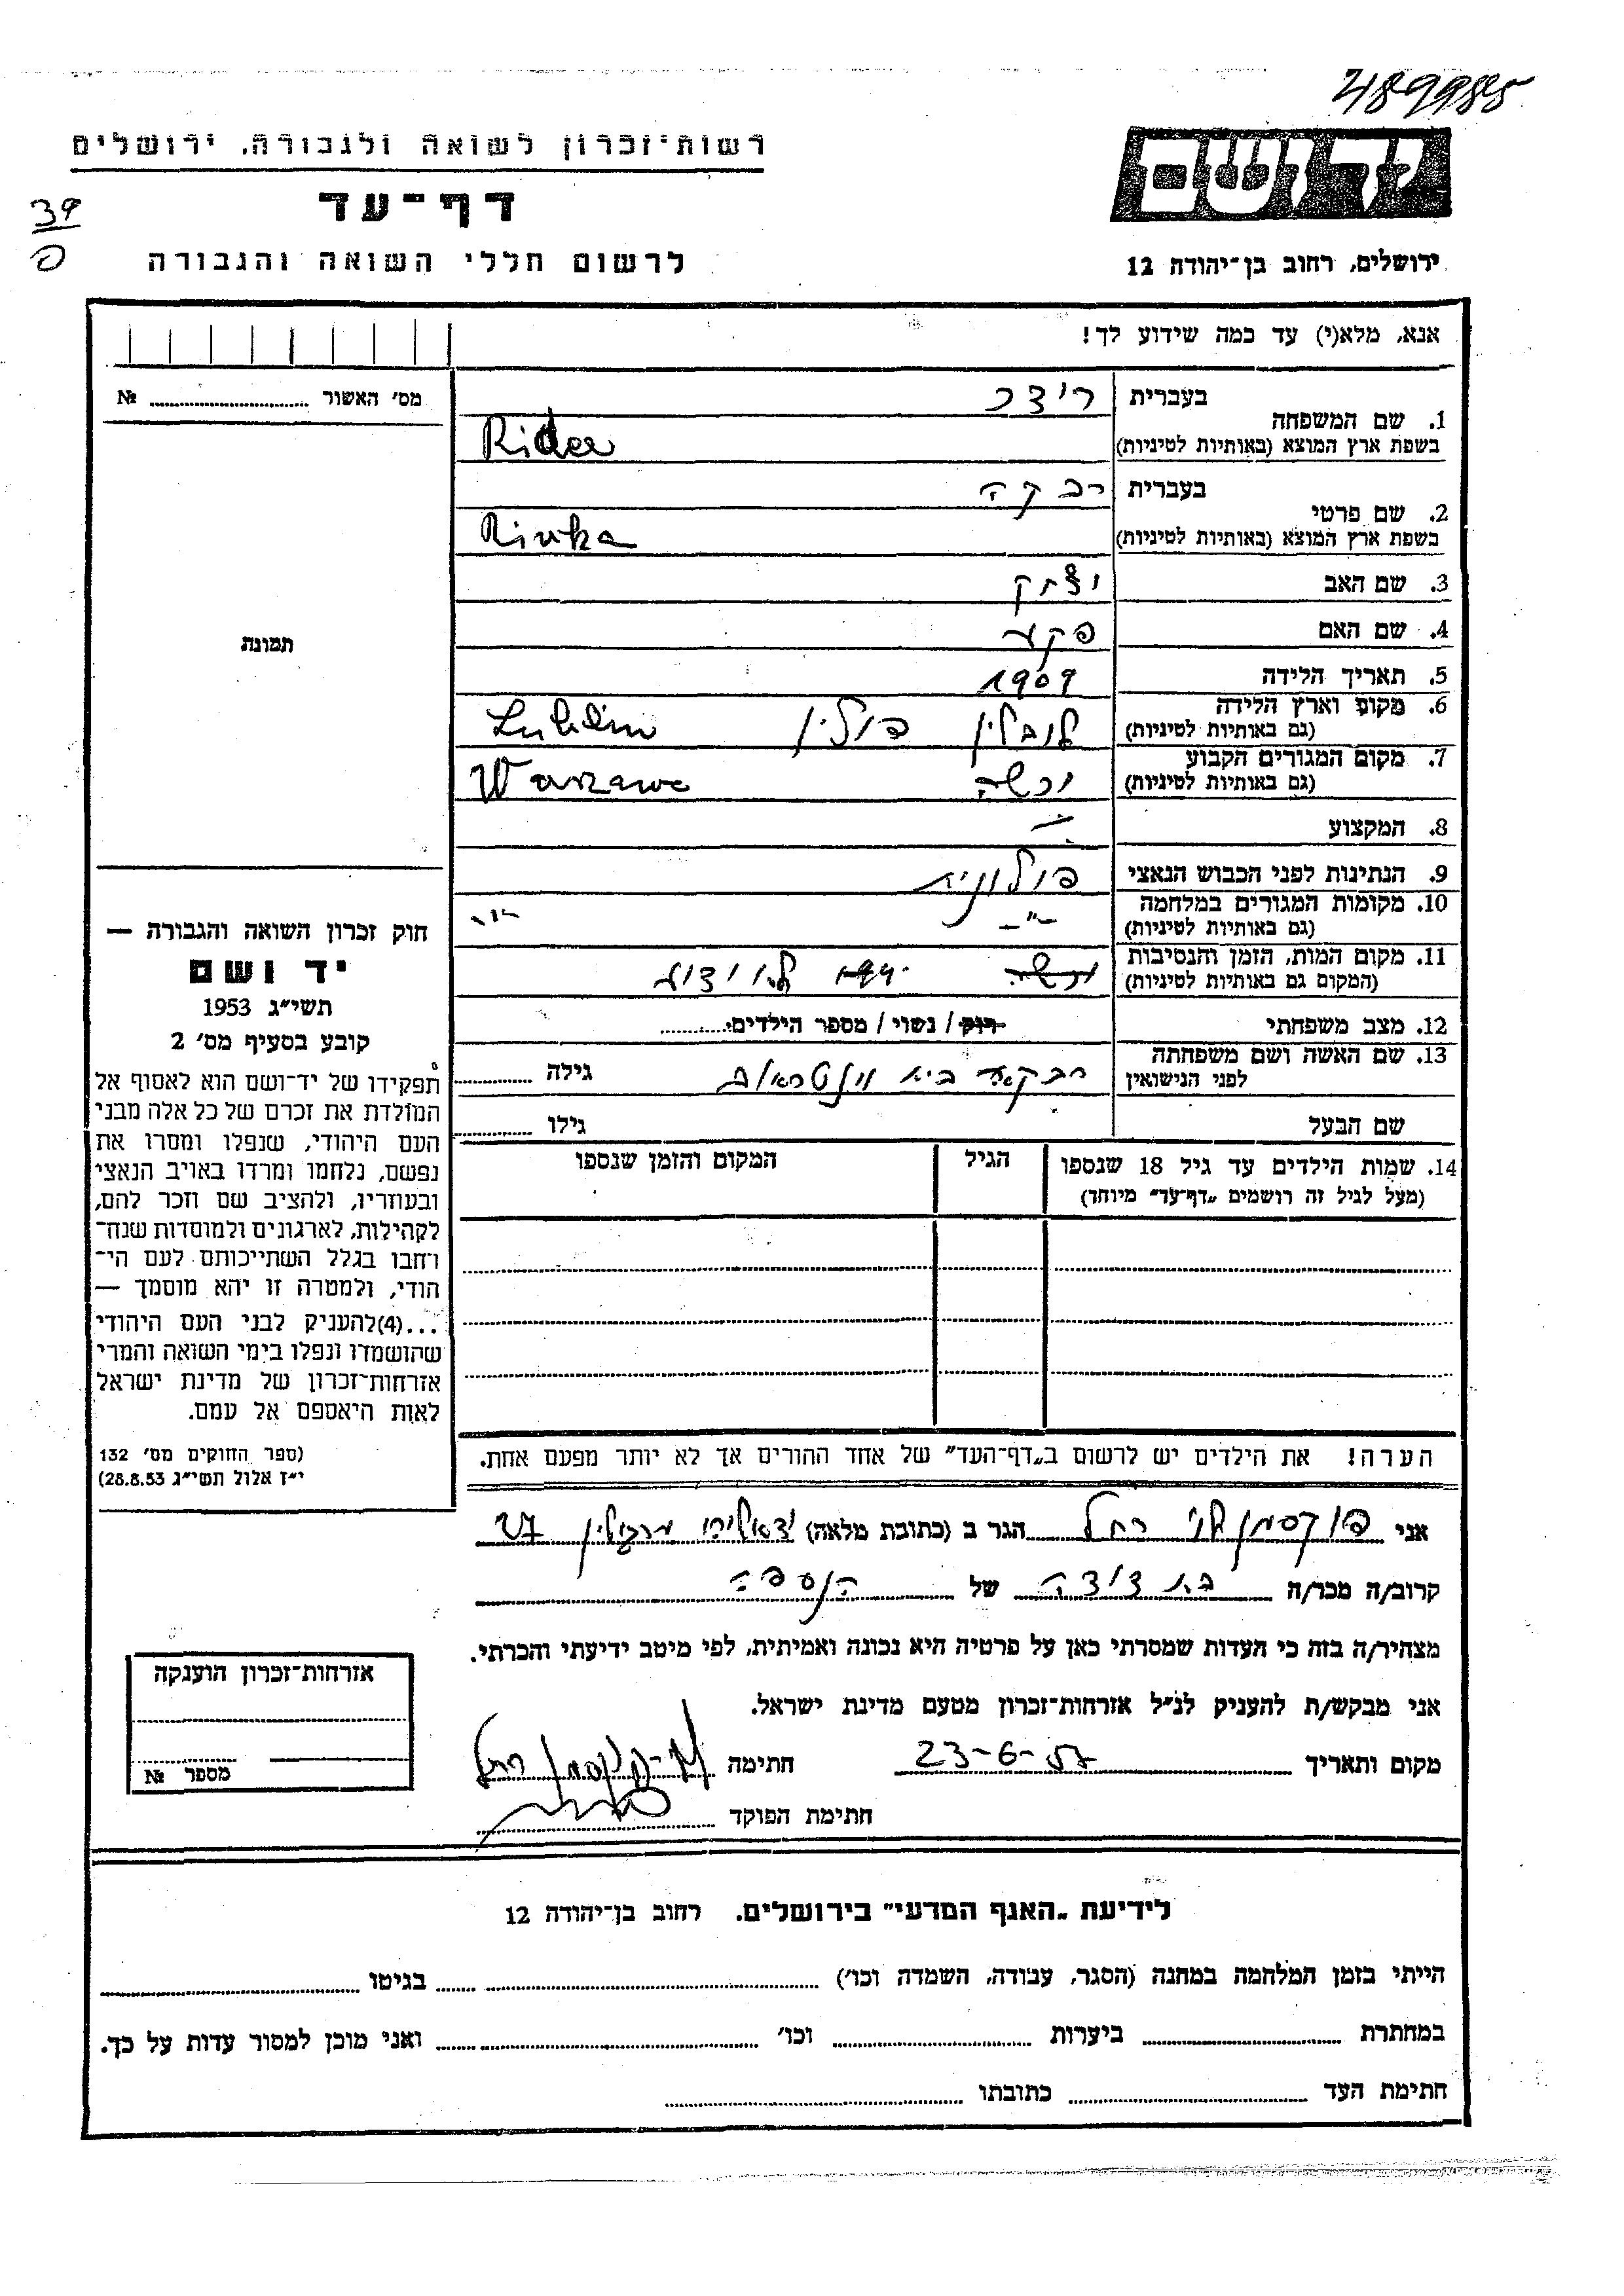 489985
רשות־זכרון לשואה ולגבורה, ירושלים
יד ושם
דף־עד
39
לרשום חללי השואה והגבורה
ירושלים, רחוב בן־יהודה 12
אנא, מלא(י) עד כמה שידוע לך!
מס׳ האשור № 
תמונה
1. שם המשפחה בעברית רידר
בשפת ארץ המוצא (באותיות לטיניות) Rider
2. שם פרטי בעברית רבקה
בשפת ארץ המוצא (באותיות לטיניות) Rivka
3. שם האב יצחק
4. שם האם
5. תאריך הלידה 1909
6. מקום וארץ הלידה לובלין פולין Lublin
(גם באותיות לטיניות)
7. מקום המגורים הקבוע ורשה Warszawa
(גם באותיות לטיניות)
8. המקצוע
9. הנתינות לפני הכבוש הנאצי פולונית
10. מקומות המגורים במלחמה -"- -"-
(גם באותיות לטיניות)
11. מקום המות, הזמן והנסיבות ורשה לא ידוע
(המקום גם באותיות לטיניות)
12. מצב משפחתי רווק / נשוי / מספר הילדים
13. שם האשה ושם משפחתה לפני הנישואין רבקה בית גילה
שם הבעל גילו
14. שמות הילדים עד גיל 18 שנספו הגיל המקום והזמן שנספו
(מעל לגיל זה רושמים „דף־עד״ מיוחד)
חוק זכרון השואה והגבורה —
יד ושם
תשי״ג 1953
קובע בסעיף מס׳ 2
תפקידו של יד־ושם הוא לאסוף אל
המולדת את זכרם של כל אלה מבני
העם היהודי, שנפלו ומסרו את
נפשם, נלחמו ומרדו באויב הנאצי
ובעוזריו, ולהציב שם וזכר להם,
לקהילות, לארגונים ולמוסדות שנח־
רחבו בגלל השתייכותם לעם הי־
הודי, ולמטרה זו יהא מוסמך —
...(4)להעניק לבני העם היהודי
שהושמדו ונפלו בימי השואה והמרי
אזרחות־זכרון של מדינת ישראל
לאות היאספם אל עמם.
(ספר החוקים מס׳ 132
י״ז אלול תשי״ג 28.8.53)
הערה! את הילדים יש לרשום ב„דף־העד״ של אחד ההורים אך לא יותר מפעם אחת.
אני רחל הגר ב (כתובת מלאה) 27
קרוב/ה מכר/ה בת דודה של הנספה
מצהיר/ה בזה כי העדות שמסרתי כאן על פרטיה היא נכונה ואמיתית, לפי מיטב ידיעתי והכרתי.
אני מבקש/ת להעניק לנ״ל אזרחות־זכרון מטעם מדינת ישראל.
מקום ותאריך 23-6-57 חתימה
חתימת הפוקד
אזרחות־זכרון הוענקה
מספר №
לידיעת „האגף המדעי״ בירושלים. רחוב בן־יהודה 12
הייתי בזמן המלחמה במחנה (הסגר, עבודה, השמדה וכו׳) בגיטו
במחתרת ביערות וכו׳ ואני מוכן למסור עדות על כך.
חתימת העד כתובתו